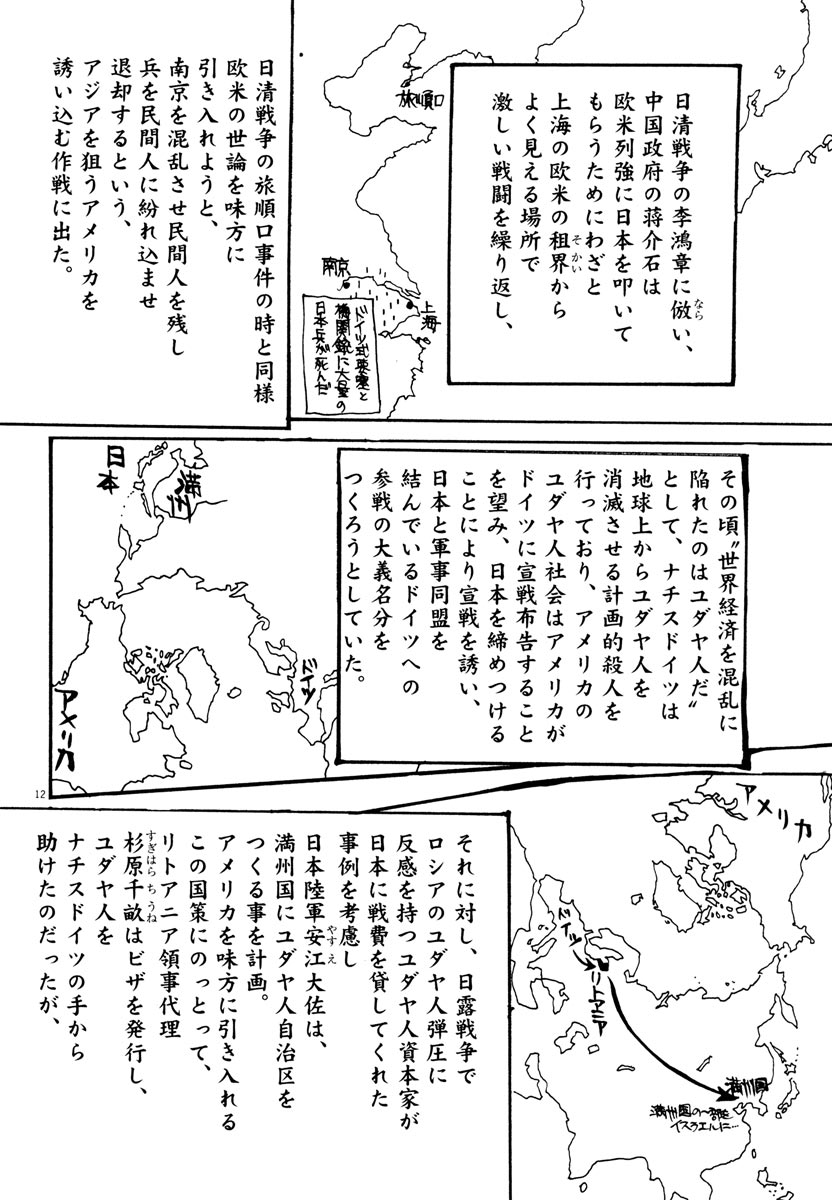 日清戦争の李鴻章に倣い、
なら
中国政府の蒋介石は
欧米列強に日本を叩いて
もらうためにわざと
上海の欧米の租界から
そかい
よく見える場所で
激しい戦闘を繰り返し、
旅順口
南京
上海
ドイツ式要塞と
機関銃に大量の
日本兵が死んだ
日清戦争の旅順口事件の時と同様
欧米の世論を味方に
引き入れようと、
南京を混乱させ民間人を残し
兵を民間人に紛れ込ませ
退却するという、
アジアを狙うアメリカを
誘い込む作戦に出た。
その頃〝世界経済を混乱に
陥れたのはユダヤ人だ〟
として、ナチスドイツは
地球上からユダヤ人を
消滅させる計画的殺人を
行っており、アメリカの
ユダヤ人社会はアメリカが
ドイツに宣戦布告すること
を望み、日本を締めつける
ことにより宣戦を誘い、
日本と軍事同盟を
結んでいるドイツへの
参戦の大義名分を
つくろうとしていた。
ドイツ
満州
日本
アメリカ
12
アメリカ
ドイツ
リトアニア
満州国
満州国の一部を
イスラエルに…
それに対し、日露戦争で
ロシアのユダヤ人弾圧に
反感を持つユダヤ人資本家が
日本に戦費を貸してくれた
事例を考慮し
日本陸軍安江大佐は、
やすえ
満州国にユダヤ人自治区を
つくる事を計画。
アメリカを味方に引き入れる
この国策にのっとって、
リトアニア領事代理
杉原千畝はビザを発行し、
すぎはらちうね
ユダヤ人を
ナチスドイツの手から
助けたのだったが、